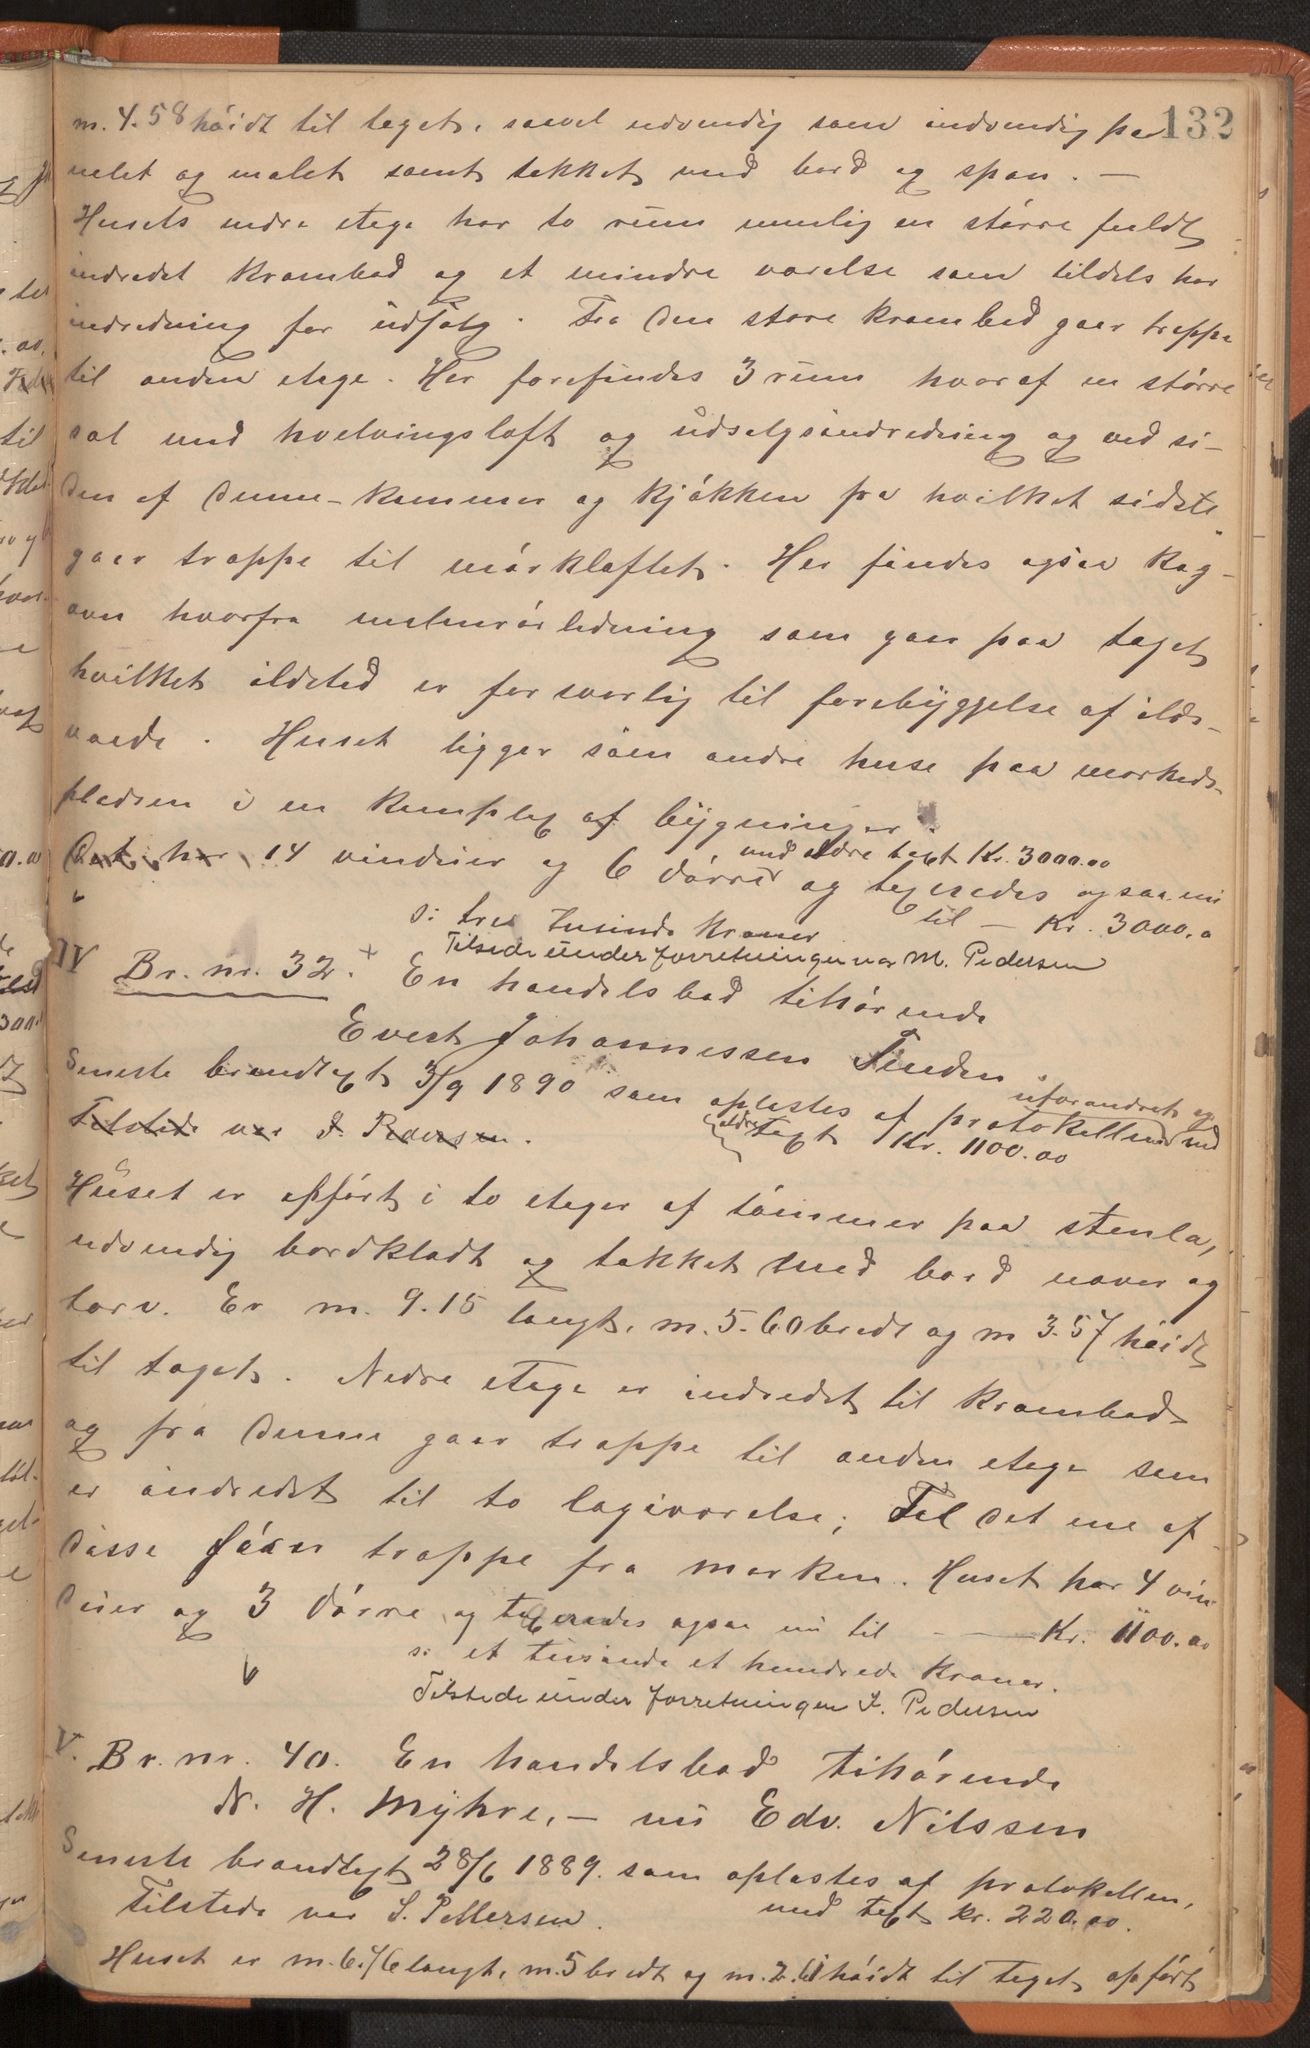 132
m. 4.58 høidt til taget, saavel udvendig som indvendig pa
nelet og malet samt tækket med bord og spon. —
Husets nedre etage har to rum nemlig en større fuldt
indredet krambod og et mindre værelse som tildels har
indredning for udsalg. Fra den store krambod gaar trappe
til anden etage. Her forefindes 3 rum hvoraf en større
sal med hvelvingsloft og udsalgsindredning og ved si-
den af denne kammer og kjøkken fra hvilket sidste
gaar trappe til mørkloftet. Her findes ogsaa kog-
ovn hvorfra melemrørledning som gaar paa taget
hvilket ildsted er forsvarlig til forebyggelse af ilds-
vaade. Huset ligger som andre huse paa markeds-
pladsen i en kompleg af bygninger.
med ældre taxt Kr. 3000.00
Det har 14 vinduer og 6 dørre og taxeredes ogsaa nu
til — Kr. 3000.0
s: tre tusinde kroner
Tilstede under forretningen var M. Pedersen
IV Br. nr. 32. + En handelsbod tilhørende
Evert Johannessen Finden.
Seneste brandtaxt 3/9 1890 som oplæstes af protokollen uforandret og med
ældre taxt Kr. 1100.00
Tilstede var J. Pedersen.
Huset er opført i to etager af tømmer paa stenla,
udvendig bordklædt og tækket med bord næver og
torv. Er m. 9.15 langt, m. 5.60 bredt og m 3.57 høidt
til taget. Nedre etage er indredet til krambod
og fra denne gaar trappe til anden etage som
er indredet til to lagiværelse; Til det ene af
disse fører trappe fra marken. Huset har 4 vin-
duer og 3 dørre og taxeredes ogsaa nu til — Kr. 1100.00
s: et tusinde et hundrede kroner.
Tilstede under forretningen J. Pedersen
V. Br. nr. 40. En handelsbod tilhørende
N. H. Myhre, — nu Edv. Nilssen
Seneste brandtaxt 28/6 1889. som oplæstes af protokollen,
med taxt kr. 220.00.
Tilstede var S. Pettersen.
Huset er m. 6.46 langt, m. 5 bredt og m. 2.61 høidt til taget, opført